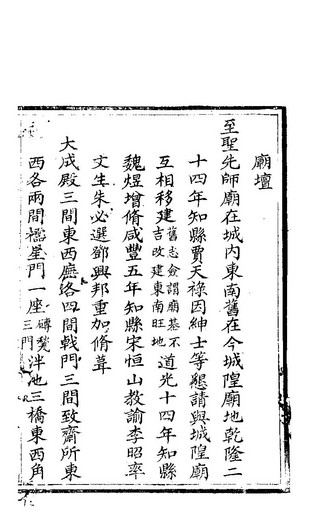 廟壇
至聖先師廟在城內東南舊在今城隍廟地乾隆二
十四年知縣賈天祿因紳士等懇請與城隍廟
互相移建舊志僉謂廟基不吉改建東南旺地道光十四年知縣
魏煜增脩咸豐五年知縣宋恒山教諭李昭率
文生朱必選鄧興邦重加脩葺
大成殿三間東西廡各四間戟門三間致齋所東
西各兩間櫺星門一座磚甃三門泮池三橋東西角